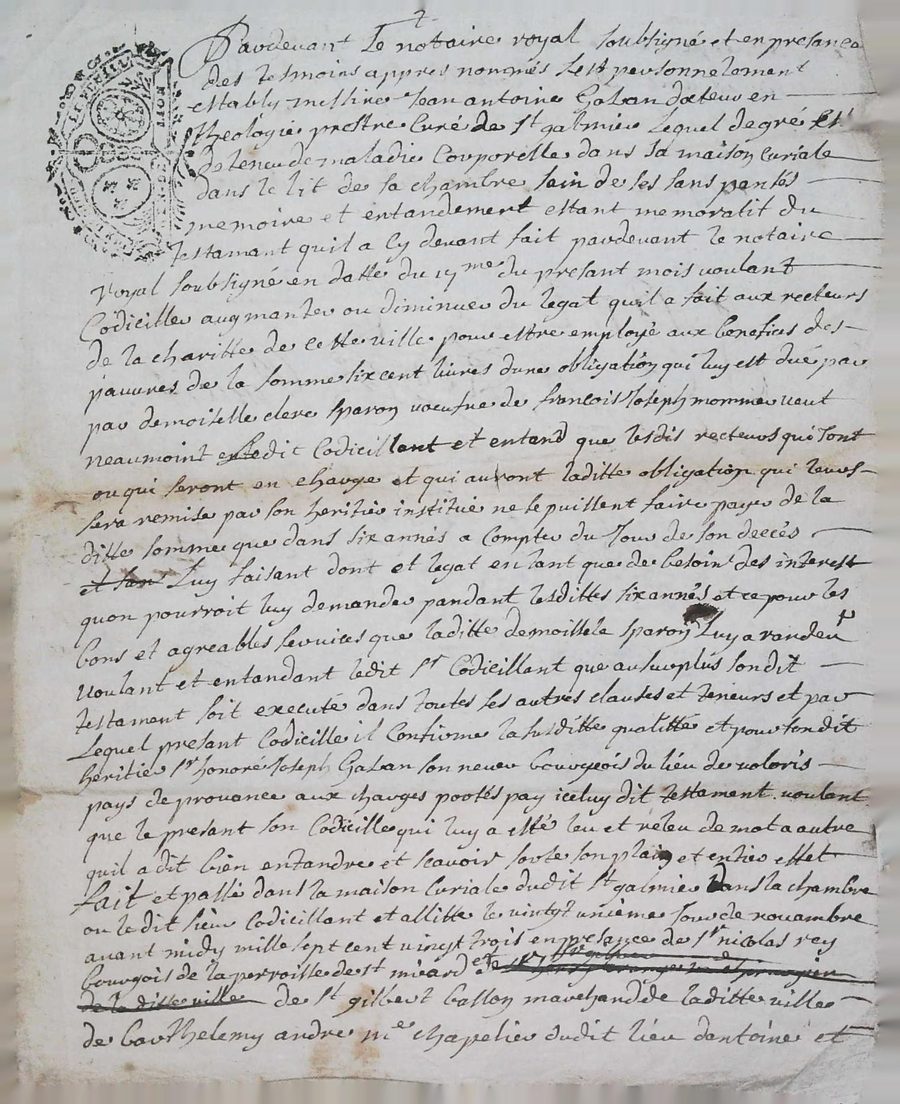 Pardevant Le notaire royal soubsigné et en presance
des tesmoins appres nommés sest personnelement
estably messire Jean antoine Galan docteur en
theologie prestre Curé de st galmier Lequel de gré et
detenu de maladie Corporelle dans sa maison Curiale
dans le lit de sa chambre sain de ses sans pensés
memoire et entandement estant memoratif du
testamant quil a Cy devant fait pardevant le notaire
royal soubsigné en datte du 17me du presant mois voulant
Codiciller augmanter ou diminuer du legat quil a fait aux recteurs
de la charitte de cette ville pour estre employé aux benefices des
pauvres de la somme six cent livres dune obligation qui luy est dué par
par demoiselle clere sparon voeufve de francois Joseph mommer veut
neaumoint ledit Codicillant et entand que lesdis recteurs qui sont
ou qui seront en charge et qui auront laditte obligation qui leurs
sera remise par son heritier institué ne se puissent faire payer de la
ditte somme que dans six annés a Compter du Jour de son decés
et san Luy faisant dont et legat en tant que de besoin des interest
quon pourroit luy demander pandant lesdittes six annés et ce pour les
bons et agreables services que laditte demoiselle sparon Luy a randeu
voulant et entandant ledit sr Codicillant que au surplus sondit
testament soit executé dans toutes ses autres clauses et teneurs et par
Lequel presant Codicille il Confirme la susditte qualitté et pour sondit
heritier sr honoré Joseph Galan son neveu bourgeois du lieu de valoris
pays de provance aux charges portés par iceluy dit testament voulant
que le presant son Codicille qui luy a esté leu et releu de mot a autre
quil a dit bien entandre et scavoir sorte son plain et entier effet
fait et passé dans la maison Curiale dudit st galmier dans la chambre
ou ledit sieur Codicillant et allitté le vingt unieme Jour de novambre
avant midy mille sept cent vingt trois en presance de sr nicolas rey
bourgois de la perroisse de st meard et de
de laditte ville de st gilbert ballon marchand de laditte ville
de barthelemy andre me chapelier dudit lieu dantoine et